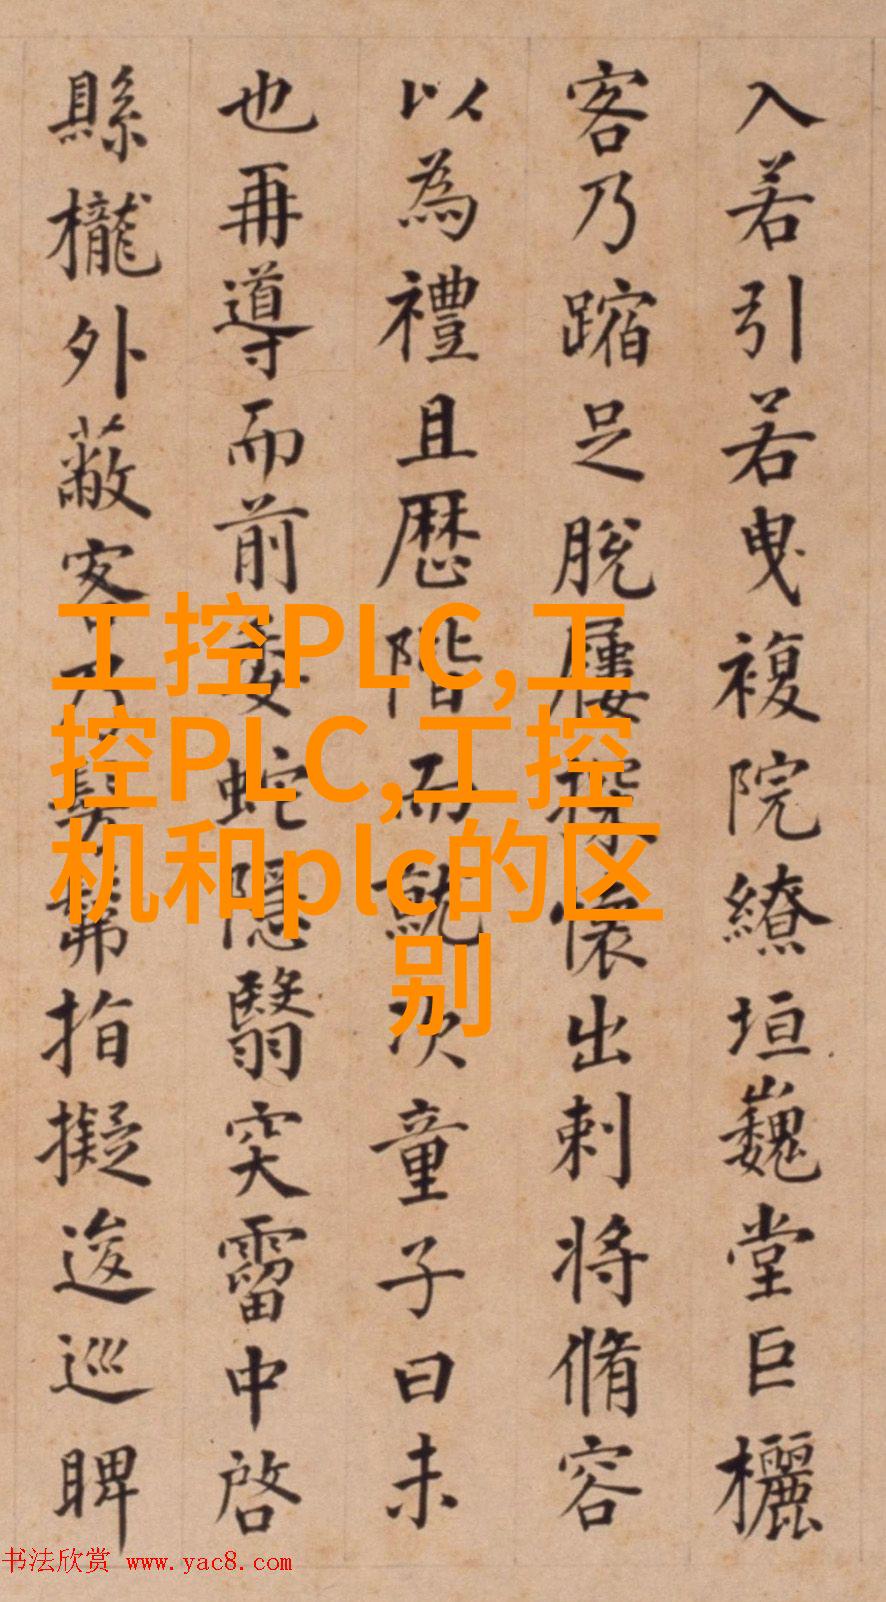 入若引若曳複院繚垣巍堂巨欐
客乃蹜足脫屨探懷出刺將脩容
以為禮且歷階而就次童子曰未
也再導而前委蛇隱翳穾霤中啓
縣櫳外蔽客乃髣髴指擬逡巡睥
工控PLC,工
控PLC,工控
机和plc的区
别
书法欣赏 www.yac8.com